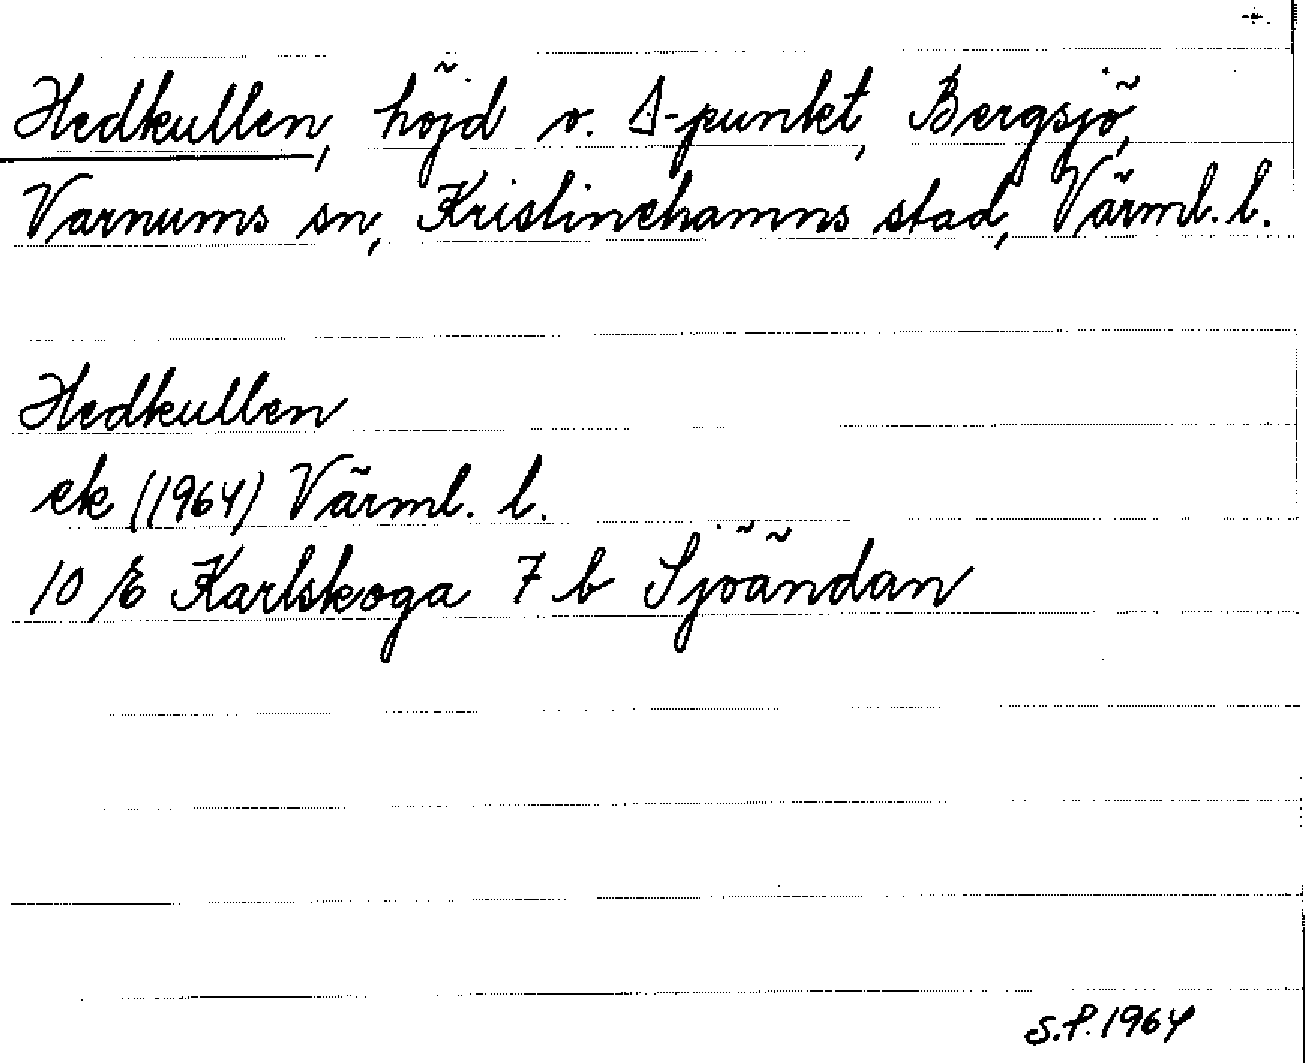 Hedkullen, höjd v. Δ-punkt, Bergsjö,
Varnums sn, Kristinehamns stad, Värml. l.
Hedkullen
ek (1964) Värml. l.
10 E Karlskoga 7 b Sjöändan
S.P. 1964